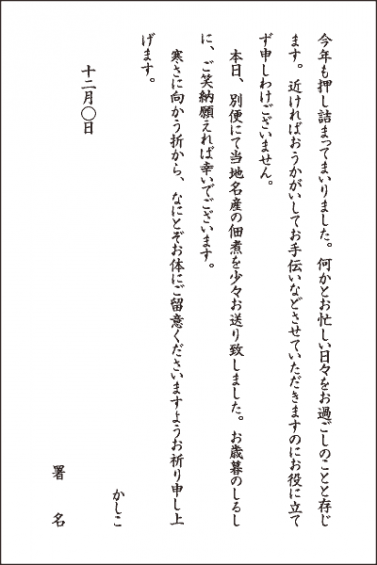 今年も押し詰まってまいりました。何かとお忙しい日々をお過ごしのことと存じ
ます。近ければおうかがいしてお手伝いなどさせていただきますのにお役に立て
ず申しわけございません。
本日、別便にて当地名産の佃煮を少々お送り致しました。お歳暮のしるし
に、ご笑納願えれば幸いでございます。
寒さに向かう折から、なにとぞお体にご留意くださいますようお祈り申し上
げます。
かしこ
十二月〇日
署名